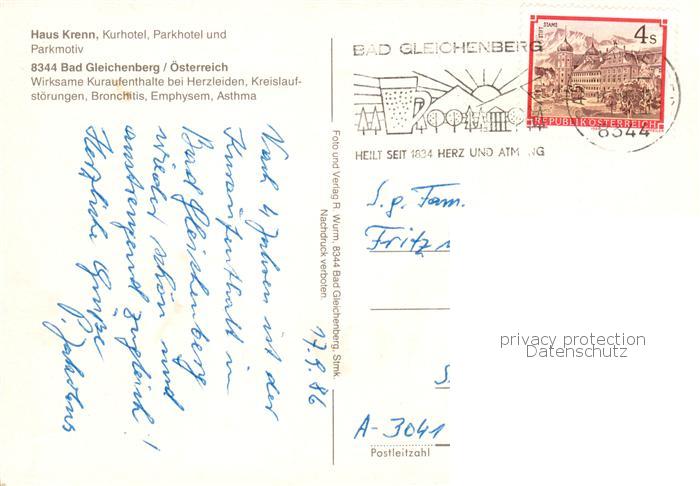 Haus Krenn, Kurhotel, Parkhotel und
Parkmotiv
8344 Bad Gleichenberg / Österreich
Wirksame Kuraufenthalte bei Herzleiden, Kreislauf-
störungen, Bronchitis, Emphysem, Asthma
BAD GLEICHENBERG
HEILT SEIT 1834 HERZ UND ATM NG
STIFT STAMS
4 S
REPUBLIK ÖSTERREICH
8344
17.9.86
Nach 4 Jahren ist der
Kuraufenthalt in
Bad Gleichenberg
wieder schön und
anstrengend zugleich!
Herzliche Grüße
Foto und Verlag R. Wurm, 8344 Bad Gleichenberg, Stmk.
Nachdruck verboten.
S. g. Fam.
Fritz
S
A-3041
Postleitzahl
privacy protection
Datenschutz